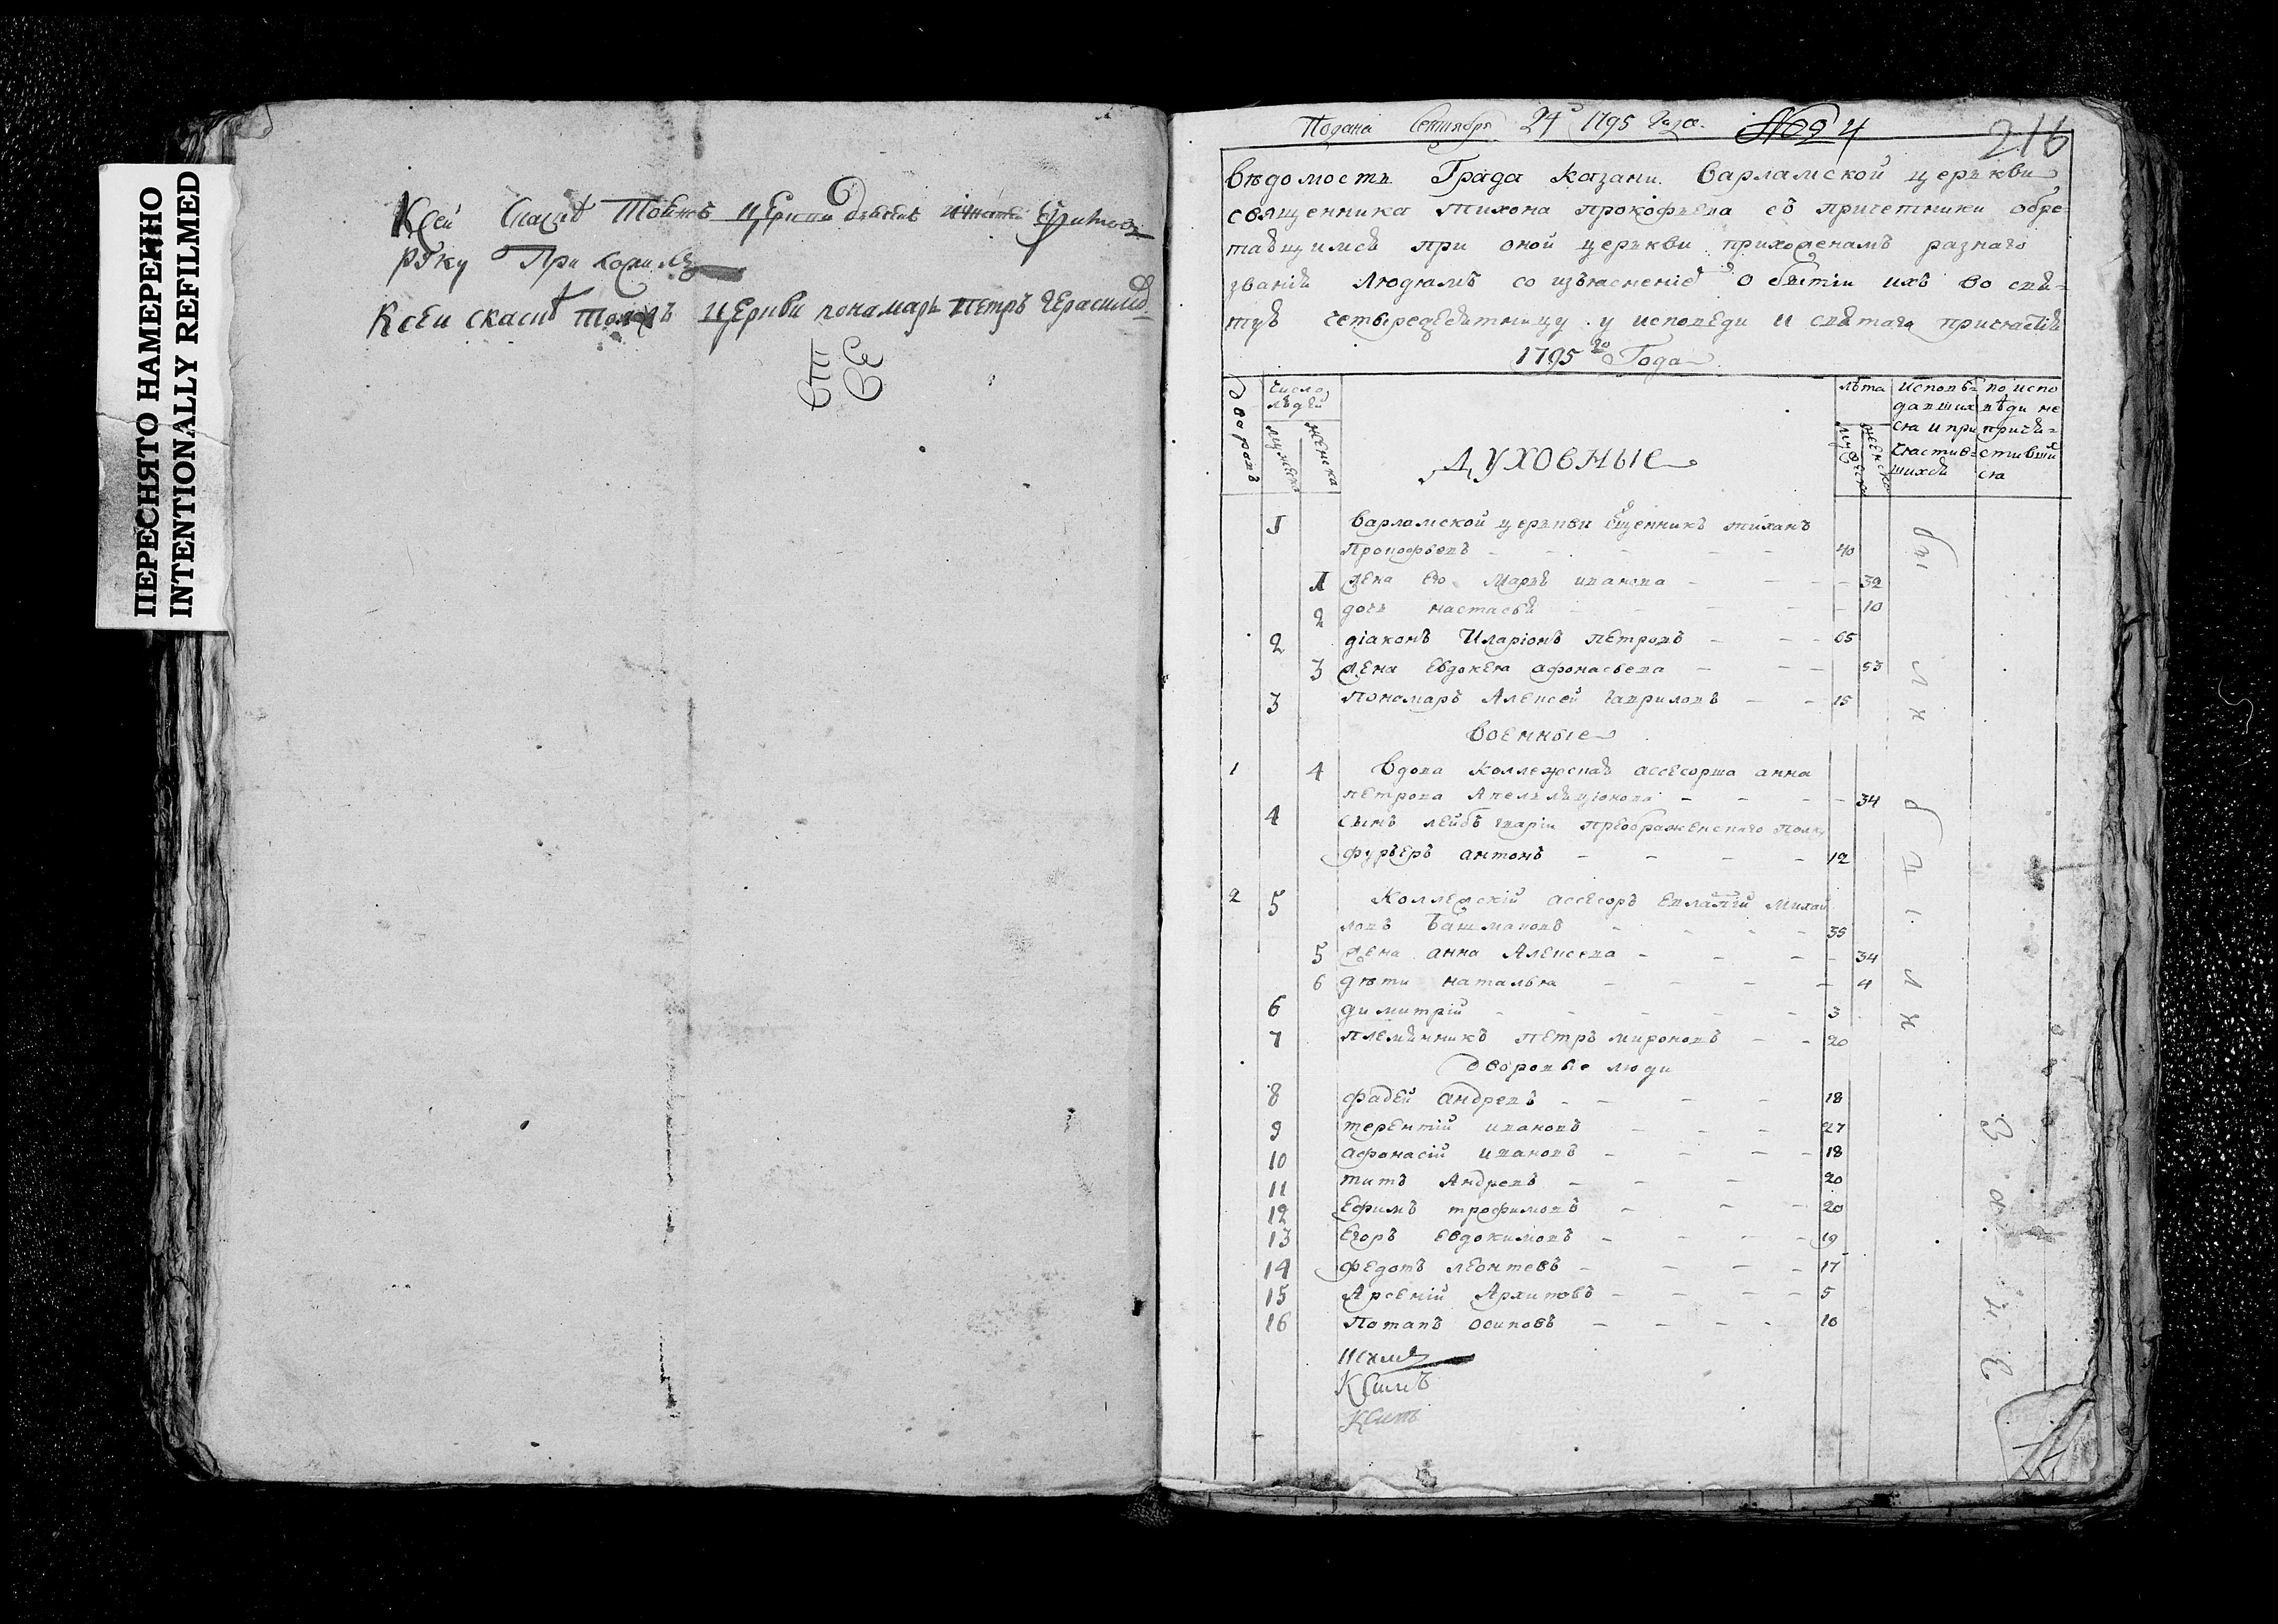 ПЕРЕСНЯТО НАМЕРЕННО
INTENTIONALLY REFILMED
К сей
руку Приложилъ
К сеи скаске тояжъ церкви понамарь петръ Герасимовъ
Подана Сентября 24г 1795 года. №24
216
вѣдомость Града казани варламской церъкви
священника тихона прокофьева съ причетники обре
тающимся при оной церъкви прихоженамъ разнаго
званія людямъ со изъясненіе о бытіи ихъ во свя=
тую четыредесятницу у исповеди и святаго причастія
1795го Года
дворовъ
число людей
мужеска
женска
ДУХОВНЫЕ
лѣта
мужеска
женска
исповѣ=
давших
ся и при
частив=
шихся
по испо
вѣди не
причя=
стивших
ся
1 варламской церъкви сщенникъ тиханъ
Прокофьевъ 40
1 жена его Марья иванова 32
2 дочь настасья 10
2 діаконъ Иларіонъ петровъ 65
3 жена евдокея афонасьева 53
3 пономаръ Алексей гавриловъ 15
военные
1 4 вдова коллежская ассесорша анна
петрова 34
4 сынъ лейбъ гвардіи преображенскаго полку
фурьеръ антонъ 12
2 5 Коллежскій ассесоръ Евлампій Михай
ловъ Башмаковъ 35
5 жена анна Алексеева 34
6 дѣти наталья 4
6 димитрій 3
7 племянникъ петръ мироновъ 20
дворовые люди
8 фадей андревъ 18
9 терентій ивановъ 27
10 афанасій ивановъ 18
11 титъ Андревъ 20
12 Ефимъ трофимовъ 20
13 Егоръ евдокимовъ 19
14 федотъ леонтевъ 17
15 Арсеній Архиповъ 5
16 Потапъ осиповъ 10
были
были
Зане